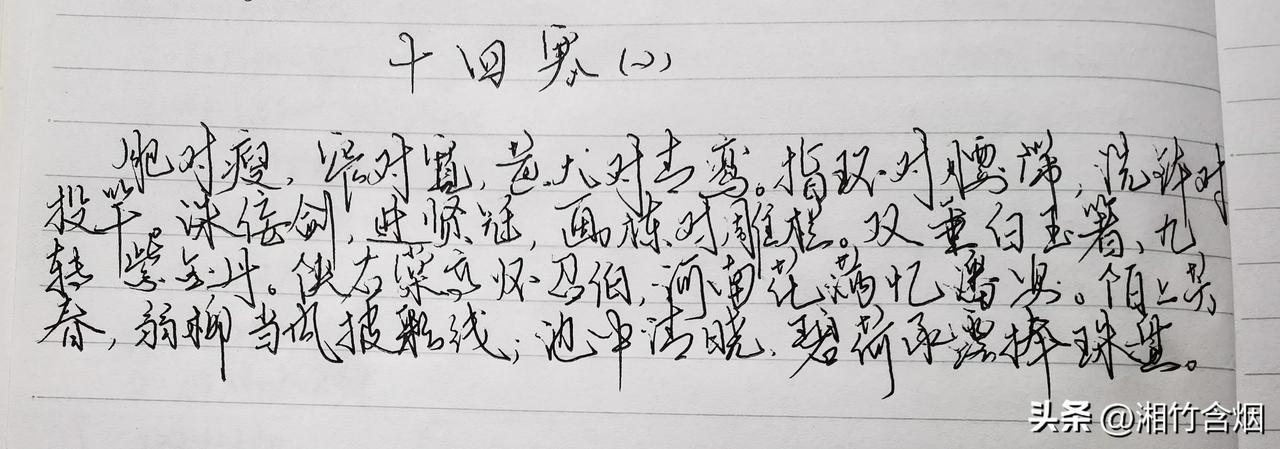 十四寒（二）
肥对瘦，窄对宽，黄犬对青鸾。指环对腰带，洗钵对
投竿。诛佞剑，进贤冠，画栋对雕栏。双垂白玉箸，九
转紫金丹。陕右棠高怀召伯，河南花满忆潘安。陌上芳
春，弱柳当风披彩线；池中清晓，碧荷承露捧珠盘。
头条 @湘竹含烟